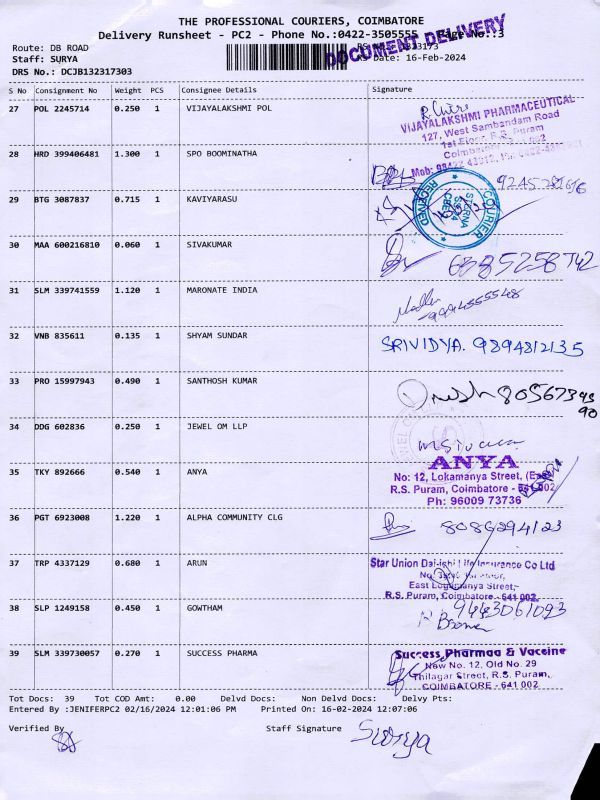 THE PROFESSIONAL COURIERS, COIMBATORE
Delivery Runsheet - PC2 - Phone No.:0422-3505555 Page No.:3
DOCUMENT DELIVERY
Route: DB ROAD
Staff: SURYA
RS Date: 16-Feb-2024
DRS No.: DCJB132317303
S No Consignment No Weight PCS Consignee Details Signature
27 POL 2245714 0.250 1 VIJAYALAKSHMI POL
VIJAYALAKSHMI PHARMACEUTICAL
127, West Sambandam Road
1st Floor, R.S. Puram
28 HRD 399406481 1.300 1 SPO BOOMINATHA
29 BTG 3087837 0.715 1 KAVIYARASU
COURIER
RECEIVED
30 MAA 600216810 0.060 1 SIVAKUMAR
31 SLM 339741559 1.120 1 MARONATE INDIA
32 VNB 835611 0.135 1 SHYAM SUNDAR
SRIVIDYA. 9894812135
33 PRO 15997943 0.490 1 SANTHOSH KUMAR
34 DDG 602836 0.250 1 JEWEL OM LLP
35 TKY 892666 0.540 1 ANYA
ANYA
No: 12, Lokamanya Street, (East)
R.S. Puram, Coimbatore - 641 002
Ph: 96009 73736
36 PGT 6923008 1.220 1 ALPHA COMMUNITY CLG
8086294123
37 TRP 4337129 0.680 1 ARUN
Star Union Dai-ichi Life Insurance Co Ltd
East Logumanya Street,
R.S. Puram, Coimbatore - 641 002.
38 SLP 1249158 0.450 1 GOWTHAM
9443061093
39 SLM 339730057 0.270 1 SUCCESS PHARMA
Success Pharmaa & Vaccine
New No. 12, Old No. 29
Thilagar Street, R.S. Puram,
COIMBATORE - 641 002
Tot Docs: 39 Tot COD Amt: 0.00 Delvd Docs: Non Delvd Docs: Delvy Pts:
Entered By :JENIFERPC2 02/16/2024 12:01:06 PM Printed On: 16-02-2024 12:07:06
Verified By Staff Signature Surya